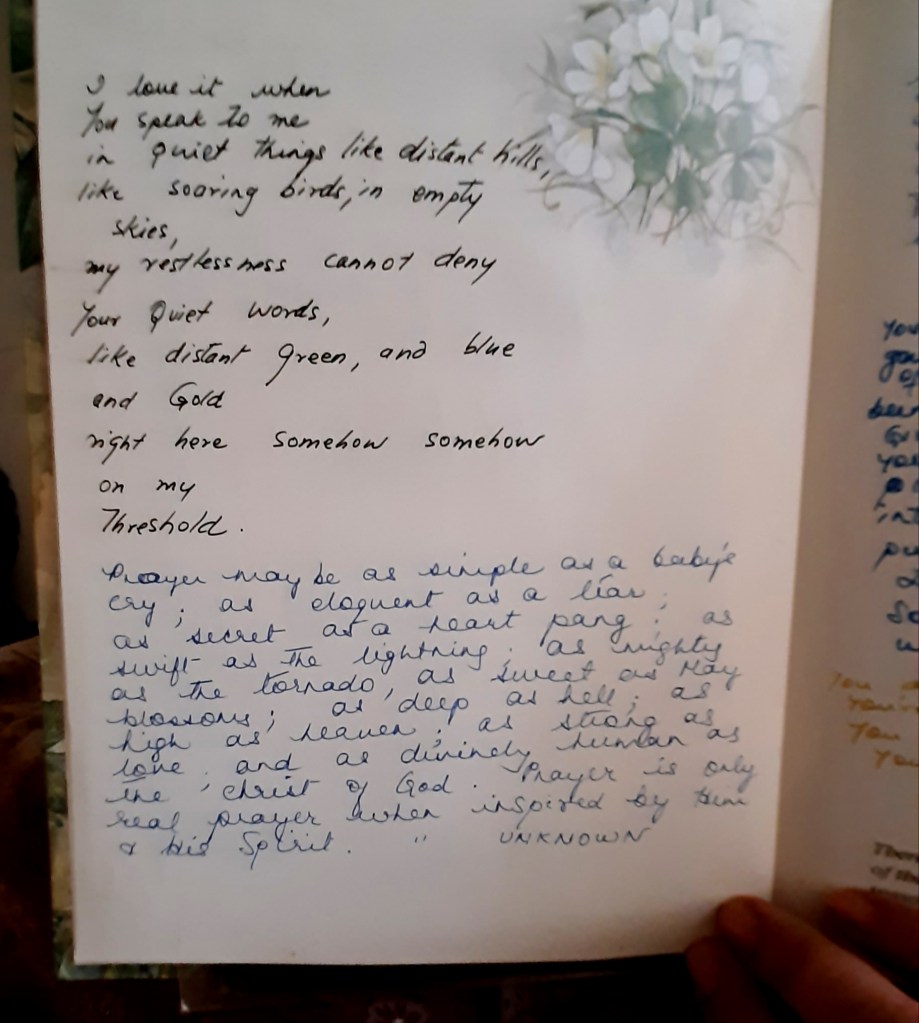 I love it when
You speak to me
in quiet things like distant hills,
like soaring birds, in empty
skies,
my restlessness cannot deny
Your Quiet words,
like distant green, and blue
and Gold
right here somehow somehow
on my
Threshold.
Prayer may be as simple as a baby's
cry; as eloquent as a liar;
as secret as a heart pang; as
swift as the lightning; as mighty
as the tornado, as sweet as May
blossoms; as deep as hell; as
high as heaven; as strong as
love; and as divinely human as
the Christ of God. Prayer is only
real prayer when inspired by Him
& his Spirit. " UNKNOWN
You
You
You